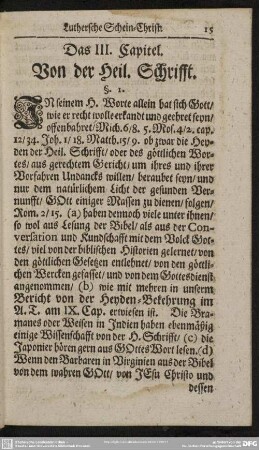 Luthersche Schein-Christ. 15
Das III. Capitel.
Von der Heil. Schrifft.
§. 1.
IN seinem H. Worte allein hat sich Gott/
wie er recht wolle erkandt und geehret seyn/
offenbahret/Mich. 6/8. 5. Mos. 4/2. cap.
12/34. Joh. 1/18. Matth. 15/9. ob zwar die Hey-
den der Heil. Schrifft/ oder des göttlichen Wor-
tes/ aus gerechtem Gericht/ um ihres und ihrer
Vorfahren Undancks willen/ beraubet seyn/ und
nur dem natürlichem Licht der gesunden Ver-
nunfft/ GOtt einiger Massen zu dienen/ folgen/
Rom. 2/15. (a) haben dennoch viele unter ihnen/
so wol aus Lesung der Bibel/ als aus der Con-
versation und Kundschafft mit dem Volck Got-
tes/ viel von der biblischen Historien gelernet/ von
den göttlichen Gesetzen entlehnet/ von den göttli-
chen Wercken gefasset/ und von dem Gottesdienst
angenommen/ (b) wie mit mehren in unserm
Bericht von der Heyden-Bekehrung im
A. T. am IX. Cap. erwiesen ist. Die Bra-
manes oder Weisen in Indien haben ebenmäßig
einige Wissenschafft von der H. Schrifft/ (c) die
Japonier hören gern aus GOttes Wort lesen. (d)
Wenn den Barbaren in Virginien aus der Bibel
von dem wahren GOtt/ von JEsu Christo und
dessen